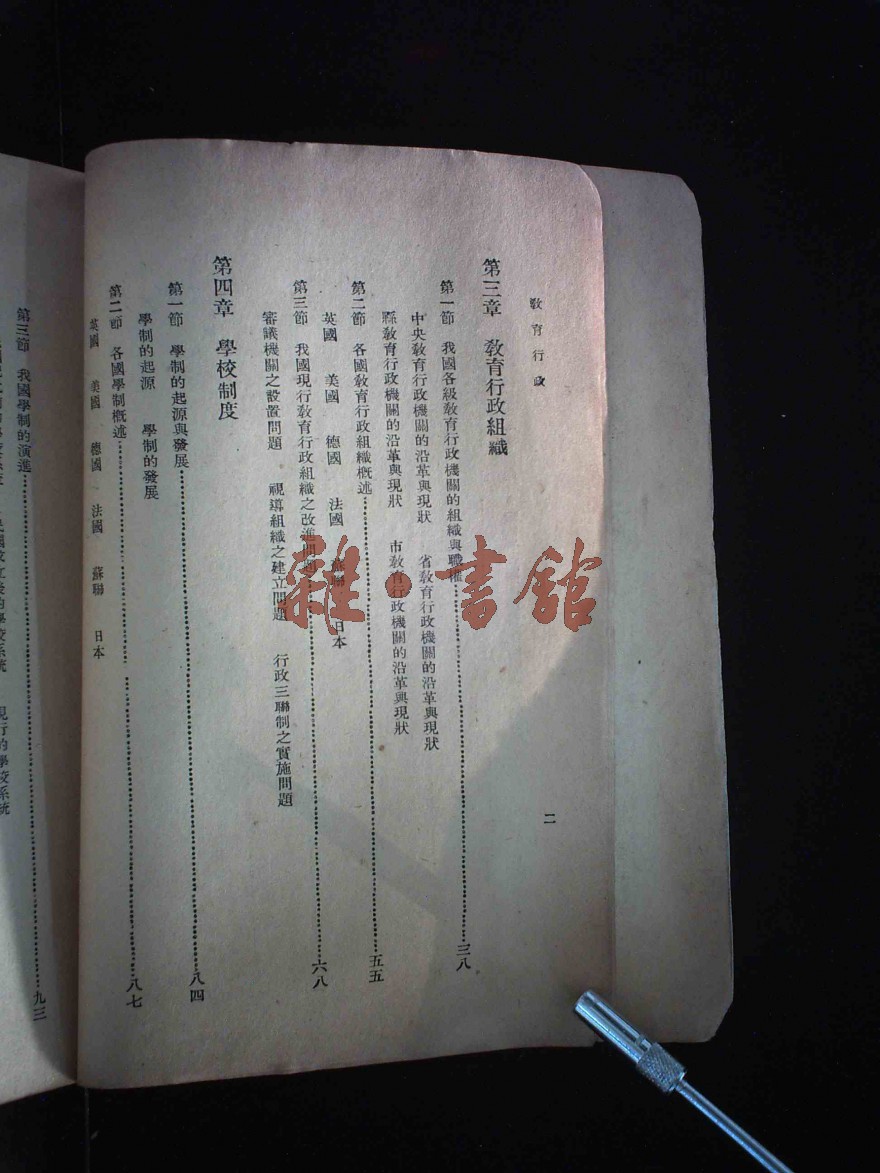 教育行政
二
第三章 教育行政組織
第一節 我國各級教育行政機關的組織與職權……三八
中央教育行政機關的沿革與現狀 省教育行政機關的沿革與現狀
縣教育行政機關的沿革與現狀 市教育行政機關的沿革與現狀
第二節 各國教育行政組織概述……五五
英國 美國 德國 法國 蘇聯 日本
第三節 我國現行教育行政組織之改進問題……六八
審議機關之設置問題 視導組織之建立問題 行政三聯制之實施問題
第四章 學校制度
第一節 學制的起源與發展……八四
學制的起源 學制的發展
第二節 各國學制概述……八七
英國 美國 德國 法國 蘇聯 日本
第三節 我國學制的演進……九三
現行的學校系統
雜·書館